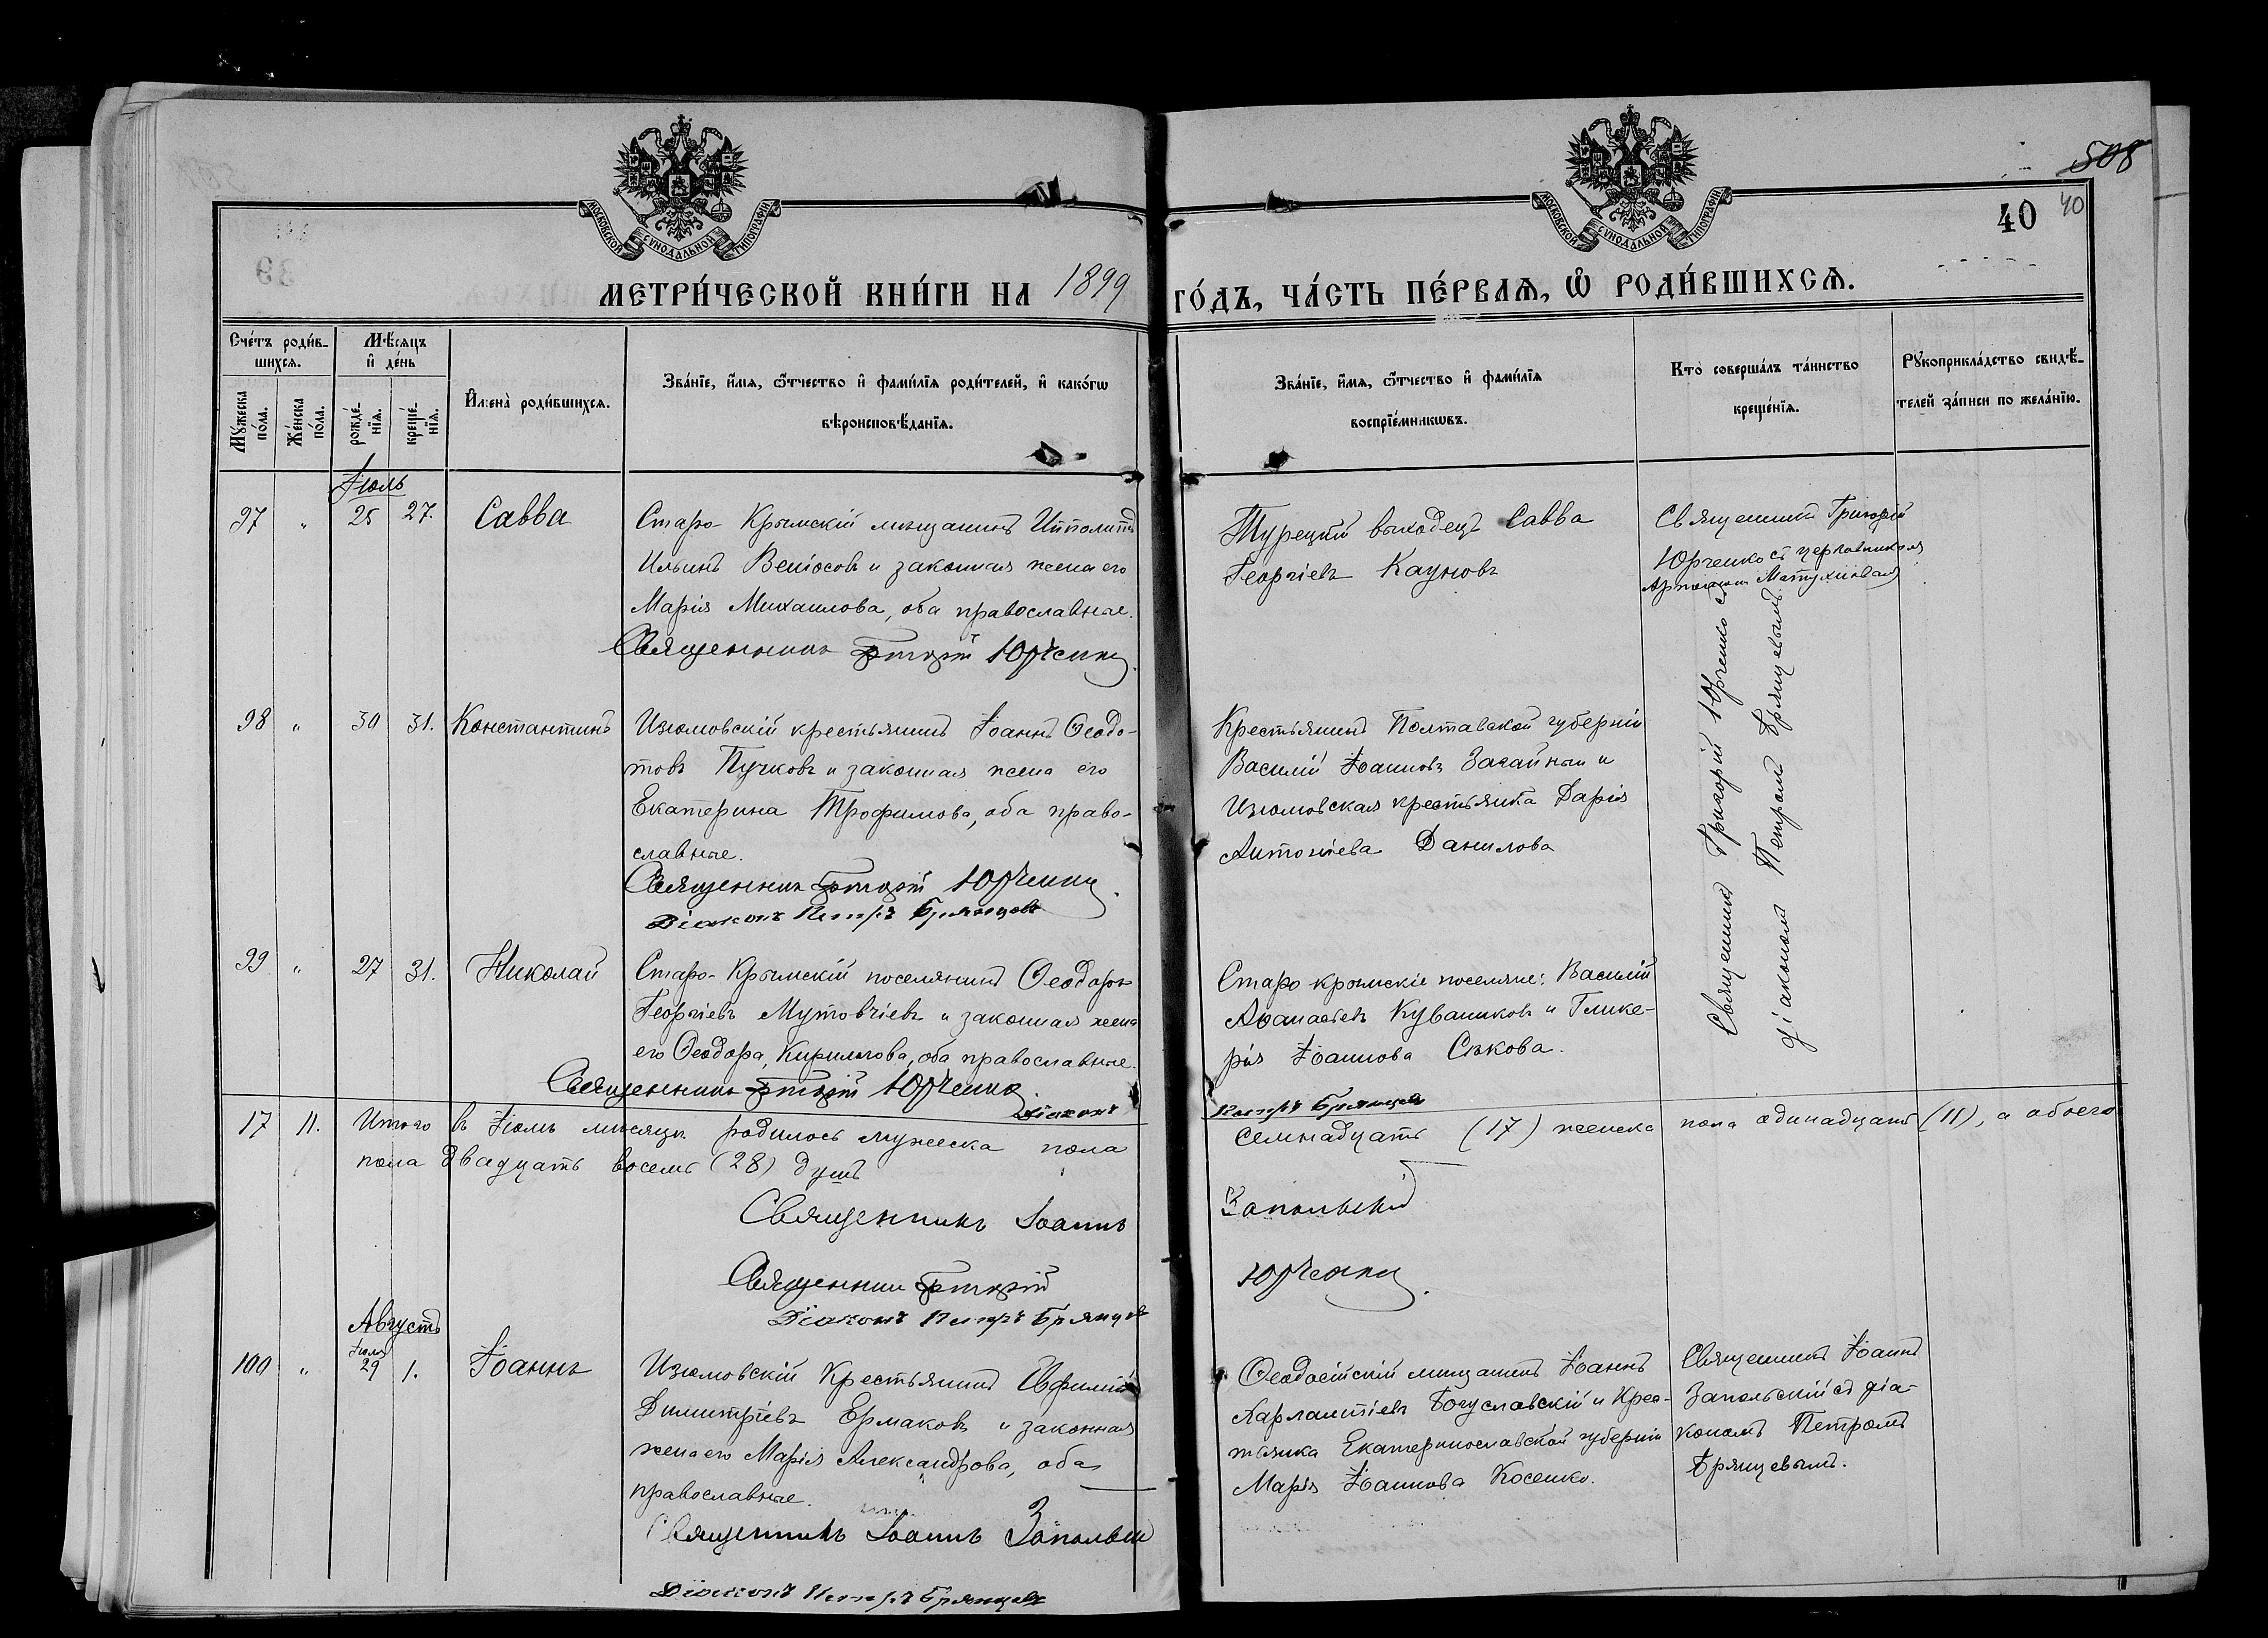 МОСКОВСКОЙ СУНОДАЛЬНОЙ ТИПОГРАФІИ
МОСКОВСКОЙ СУНОДАЛЬНОЙ ТИПОГРАФІИ
508
40 40
МЕТРИ́ЧЕСКОЙ КНИ́ГИ НА 1899 ГО́ДЪ, ЧА́СТЬ ПЕ́РВАѦ, Ѡ҆ РОДИ́ВШИХСѦ.
Сче́тъ роди́в-
шихсѧ.
Мꙋ́жеска по́ла.
Же́нска по́ла.
Мѣ́сѧцъ
и҆ де́нь
рожде́-
нїѧ.
креще́-
нїѧ.
И҆мена̀ роди́вшихсѧ.
Зва́нїе, и҆́мѧ, ѻ҆́тчество и҆ фами́лїѧ роди́телей, и҆ како́гѡ
вѣроисповѣ́данїѧ.
Зва́нїе, и҆́мѧ, ѻ҆́тчество и҆ фами́лїѧ
воспрїе́мникѡвъ.
Кто̀ соверша́лъ та́инство
креще́нїѧ.
Рꙋкоприкла́дство свидѣ́-
телей за́писи по жела́нїю.
Іюль
97 " 25 27. Савва
Старо-Крымскій мѣщанинъ Ипполитъ
Ильинъ Веніосовъ и законная жена его
Марія Михаилова, оба православные.
Священникъ Григорій Юрченко
Турецкій выходецъ Савва
Георгіевъ Кауновъ
Священникъ Григорій
Юрченко съ церковникомъ
Матухновымъ
98 " 30 31. Константинъ
Изюмовскій крестьянинъ Іоаннъ Ѳеодо-
товъ Пучковъ и законная жена его
Екатерина Трофимова, оба право-
славные.
Священникъ Григорій Юрченко
Діаконъ Петръ Брянцевъ
Крестьянинъ Полтавской губерніи
Василій Іоанновъ и
Изюмовская крестьянка Дарія
Антоніева Данилова
Священникъ Григорій Юрченко съ
діакономъ Петромъ Брянцевымъ
99 " 27 31. Николай
Старо-Крымскій поселянинъ Ѳеодоръ
Георгіевъ Мутовчіевъ и законная жена
его Ѳеодора Кириллова, оба православные.
Священникъ Григорій Юрченко
Діаконъ Петръ Брянцевъ
Старо крымскіе поселяне: Василій
Аѳанасіевъ Куванжовъ и Глике-
рія Іоаннова Сѣкова.
17 11. Итого въ Іюлѣ мѣсяцѣ родилось мужеска пола семнадцать (17) женска пола одинадцать (11), а обоего
пола двадцать восемь (28) душъ
Священникъ Іоаннъ Запольскій
Священникъ Григорій Юрченко
Діаконъ Петръ Брянцевъ
Августъ
Іюля
100 " 29 1. Іоаннъ
Изюмовскій Крестьянинъ Евфимій
Димитріевъ Ермаковъ и законная
жена его Марія Александрова, оба
православные.
Священникъ Іоаннъ Запольскій
Діаконъ Петръ Брянцевъ
Ѳеодосійскій мѣщанинъ Іоаннъ
Харлампіевъ Богуславскій и Крес-
тьянка Екатеринославской губерніи
Марія Іоаннова Косенко.
Священникъ Іоаннъ
Запольскій съ діа-
кономъ Петромъ
Брянцевымъ.